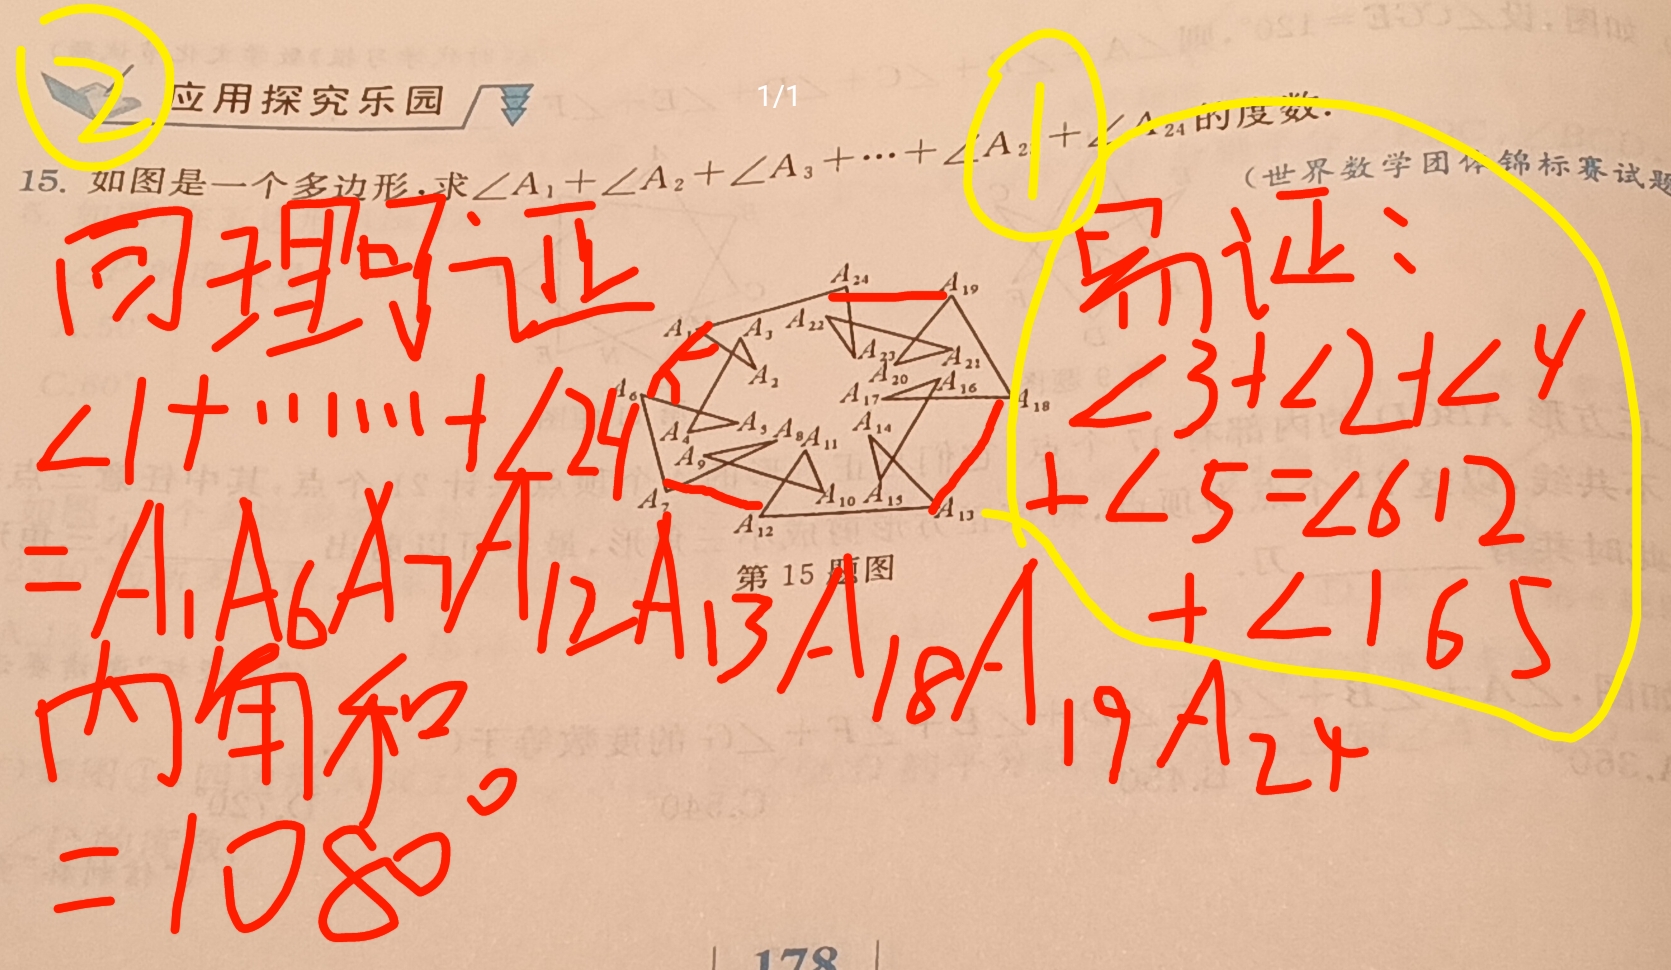 ②
应用探究乐园
1/1
①
15. 如图是一个多边形,求∠A₁+∠A₂+∠A₃+…+∠A₂ +∠A₂₄的度数.
(世界数学团体锦标赛试题
同理可证
∠1+……+∠24
=A₁A₆A₇A₁₂A₁₃A₁₈A₁₉A₂₄
内角和。
=1080°
易证:
∠3+∠2+∠4
+∠5=∠612
+∠165
A₂₄
A₁₉
A₁
A₃
A₂₂
A₂₃
A₂₁
A₂
A₂₀
A₁₆
A₆
A₁₇
A₁₈
A₄
A₅
A₈
A₁₁
A₁₄
A₉
A₇
A₁₀
A₁₅
A₁₂
A₁₃
第 15 题图
178